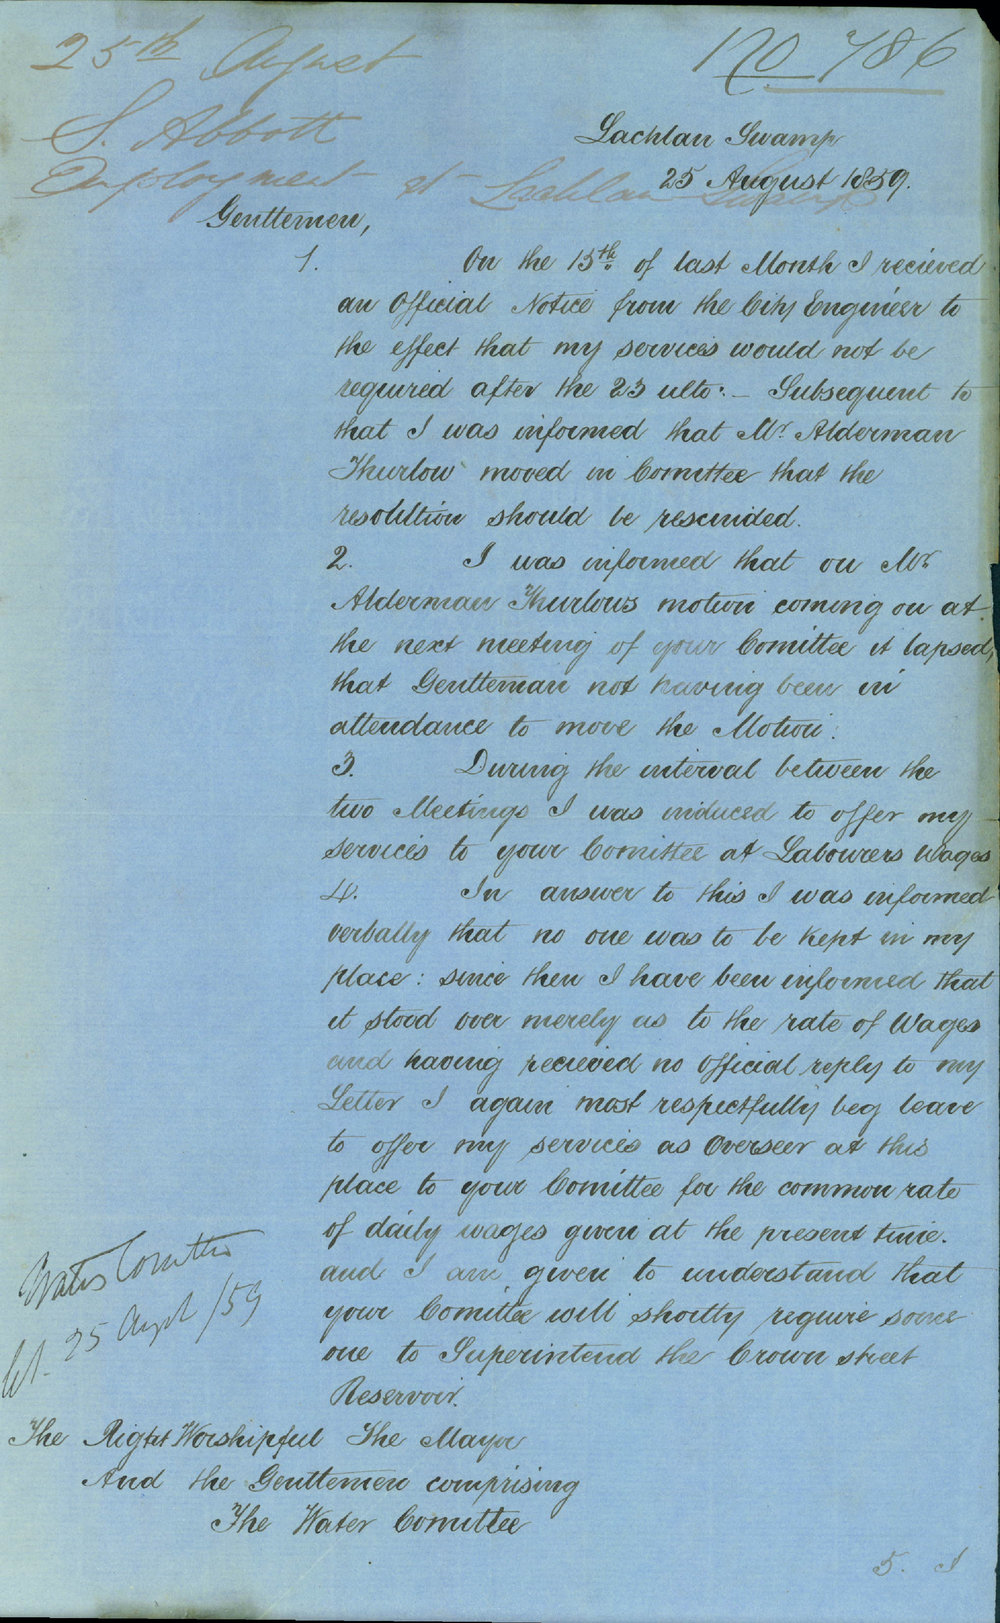 25th August
No 786
S. Abbott
Employment at Lachlan Swamp
Lachlan Swamp
25 August 1859.
Genttemen,
1. On the 13th of last Month I recieved
an Official Notice from the City Engineer to
the effect that my services would not be
required after the 23 ulto:- Subsequent to
that I was informed that Mr. Alderman
Thurlow moved in Comittee that the
resolution should be rescinded.
2. I was informed that on Mr
Alderman Thurlows motion coming on at
the next meeting of your Comittee it lapsed,
that Gentteman not having been in
attendance to move the Motion.
3. During the interval between the
two Meetings I was induced to offer my
services to your Comittee at Labourers Wages
4. In answer to this I was informed
verbally that no one was to be kept in my
place: since then I have been informed that
it stood over merely as to the rate of Wages
and having recieved no Official reply to my
Letter I again most respectfully beg leave
to offer my services as Overseer at this
place to your Comittee for the common rate
of daily wages given at the present time.
and I am given to understand that
your Comittee will shortly require some
one to Superintend the Crown street
Reservoir.
Water Comttee
25 Augst /59
The Right Worshipful The Mayor
And the Genttemen comprising
The Water Comittee
5. I